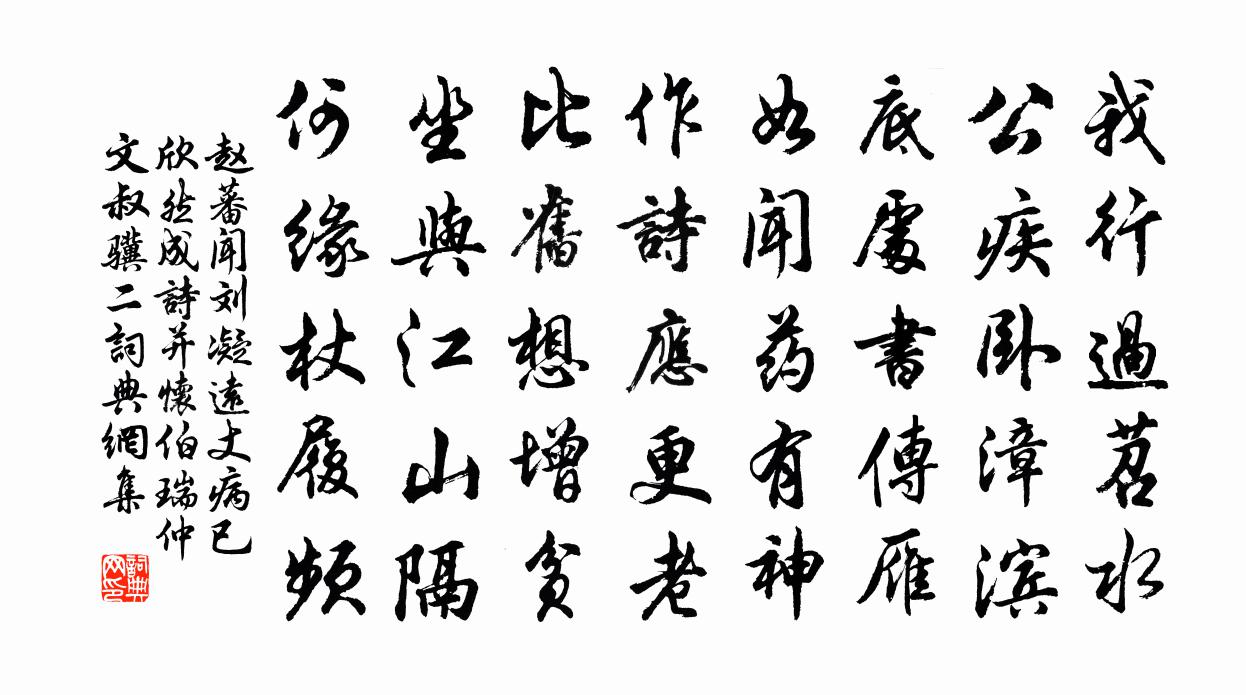 我行過苕水
公疾卧漳滨
底處書傳雁
如聞药有神
作詩應更老
比舊想增貧
坐與江山隔
何緣杖履頻
赵蕃闻刘凝遠丈病已
欣然成詩并懷伯瑞仲
文叔骥二詞典網集
詞典
网印